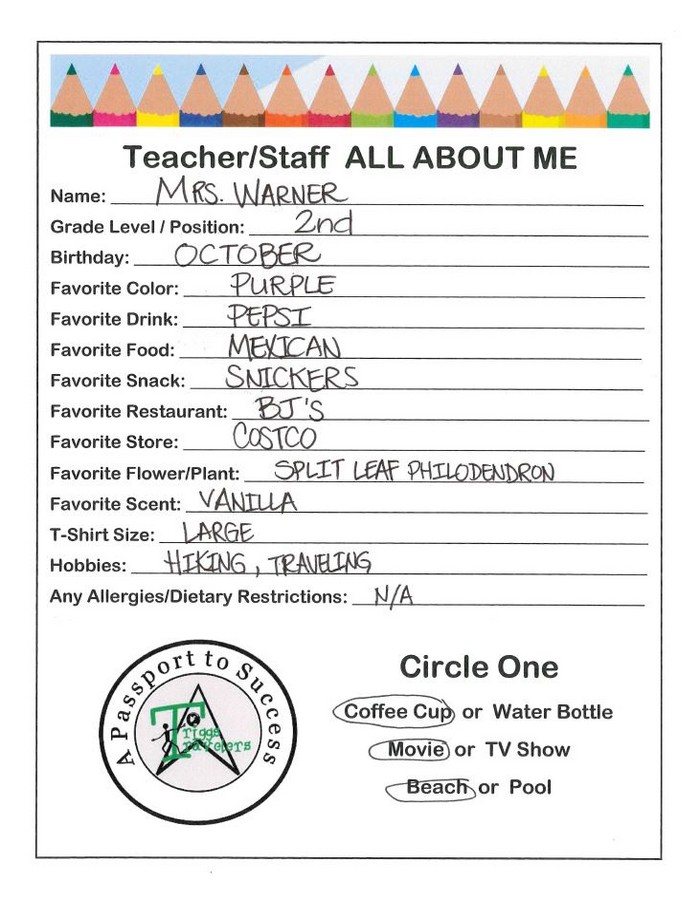 Teacher/Staff ALL ABOUT ME
Name: MRS. WARNER
Grade Level / Position: 2nd
Birthday: OCTOBER
Favorite Color: PURPLE
Favorite Drink: PEPSI
Favorite Food: MEXICAN
Favorite Snack: SNICKERS
Favorite Restaurant: BJ'S
Favorite Store: COSTCO
Favorite Flower/Plant: SPLIT LEAF PHILODENDRON
Favorite Scent: VANILLA
T-Shirt Size: LARGE
Hobbies: HIKING, TRAVELING
Any Allergies/Dietary Restrictions: N/A
A Passport to Success
Triggs
Travelers
Circle One
Coffee Cup or Water Bottle
Movie or TV Show
Beach or Pool